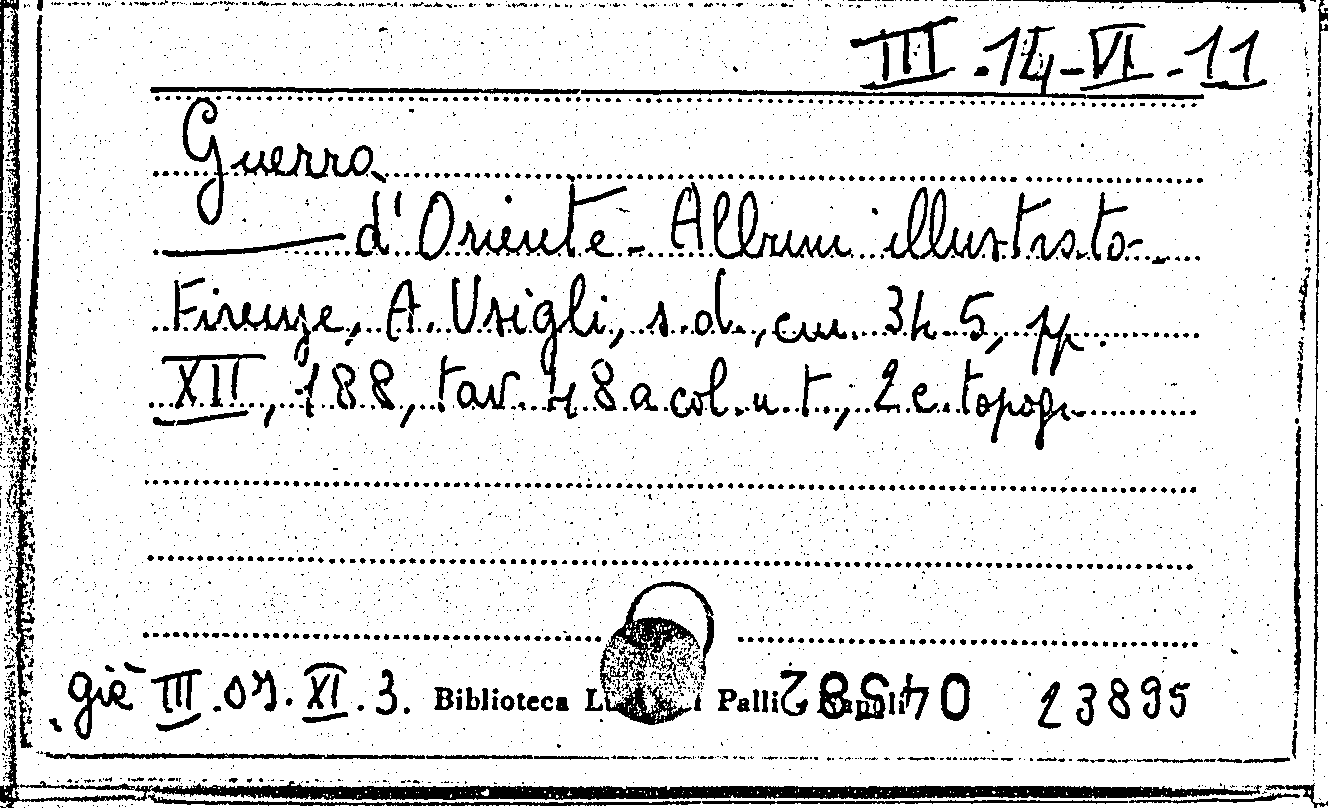 III.14-VI-11
Guerra
d'Oriente - Album illustrato -
Firenze, A. Usigli, s.d., cm. 34,5, pp.
XII, 188, tav. 48 a col. n. t., 2 c. topogr.
già III.07.XI.3. Biblioteca Palli 23895